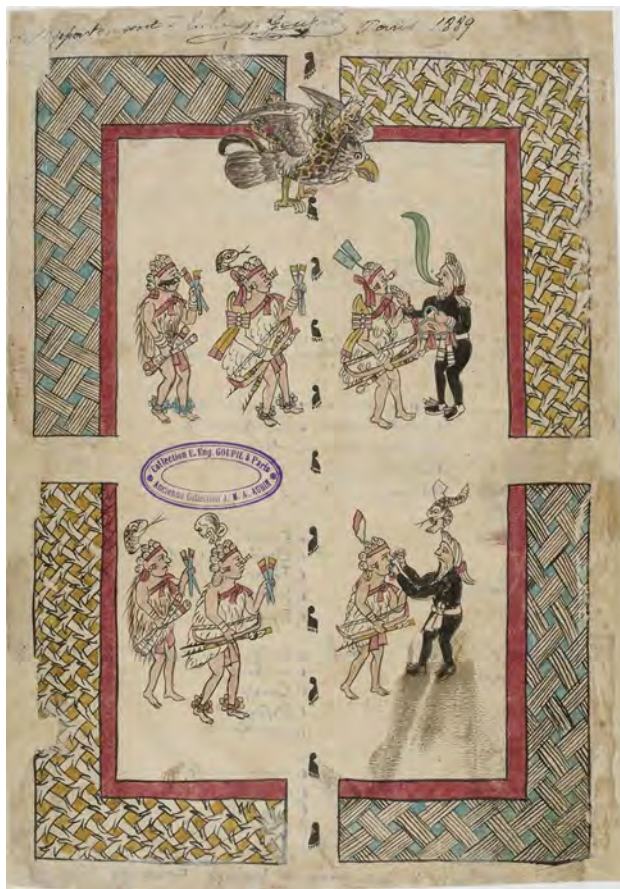 Goupil Paris 1889
Collection E. Eug. GOUPIL à Paris
Ancienne Collection J. M. A. AUBIN